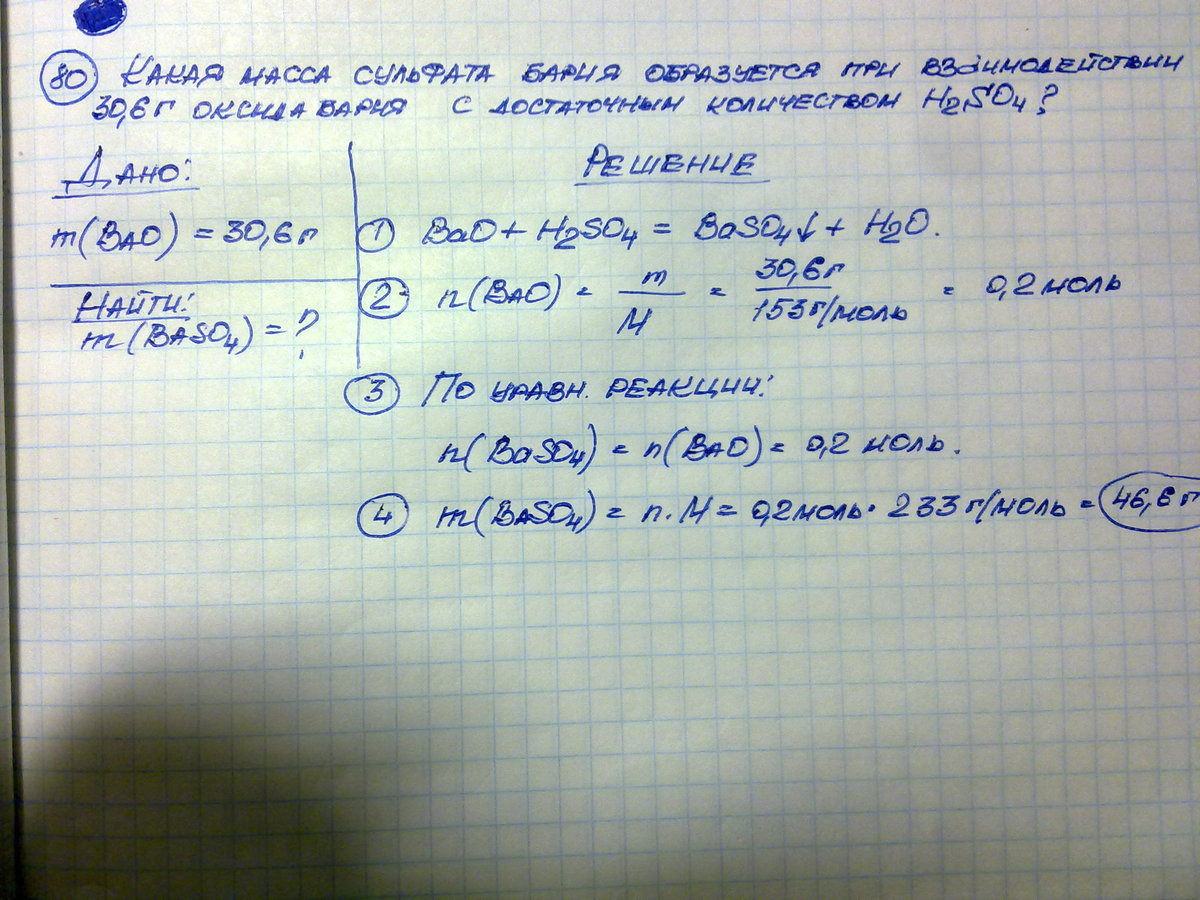 80 КАКАЯ МАССА СУЛЬФАТА БАРИЯ ОБРАЗУЕТСЯ ПРИ ВЗАИМОДЕЙСТВИИ
30,6 г ОКСИДА БАРИЯ С ДОСТАТОЧНЫМ КОЛИЧЕСТВОМ H₂SO₄?
ДАНО:
m(BaO) = 30,6 г
НАЙТИ:
m(BaSO₄) = ?
РЕШЕНИЕ
1 BaO + H₂SO₄ = BaSO₄↓ + H₂O.
2 n(BaO) = m/M = 30,6 г/153 г/моль = 0,2 моль
3 ПО УРАВН. РЕАКЦИИ:
n(BaSO₄) = n(BaO) = 0,2 моль.
4 m(BaSO₄) = n·M = 0,2 моль · 233 г/моль = 46,6 г